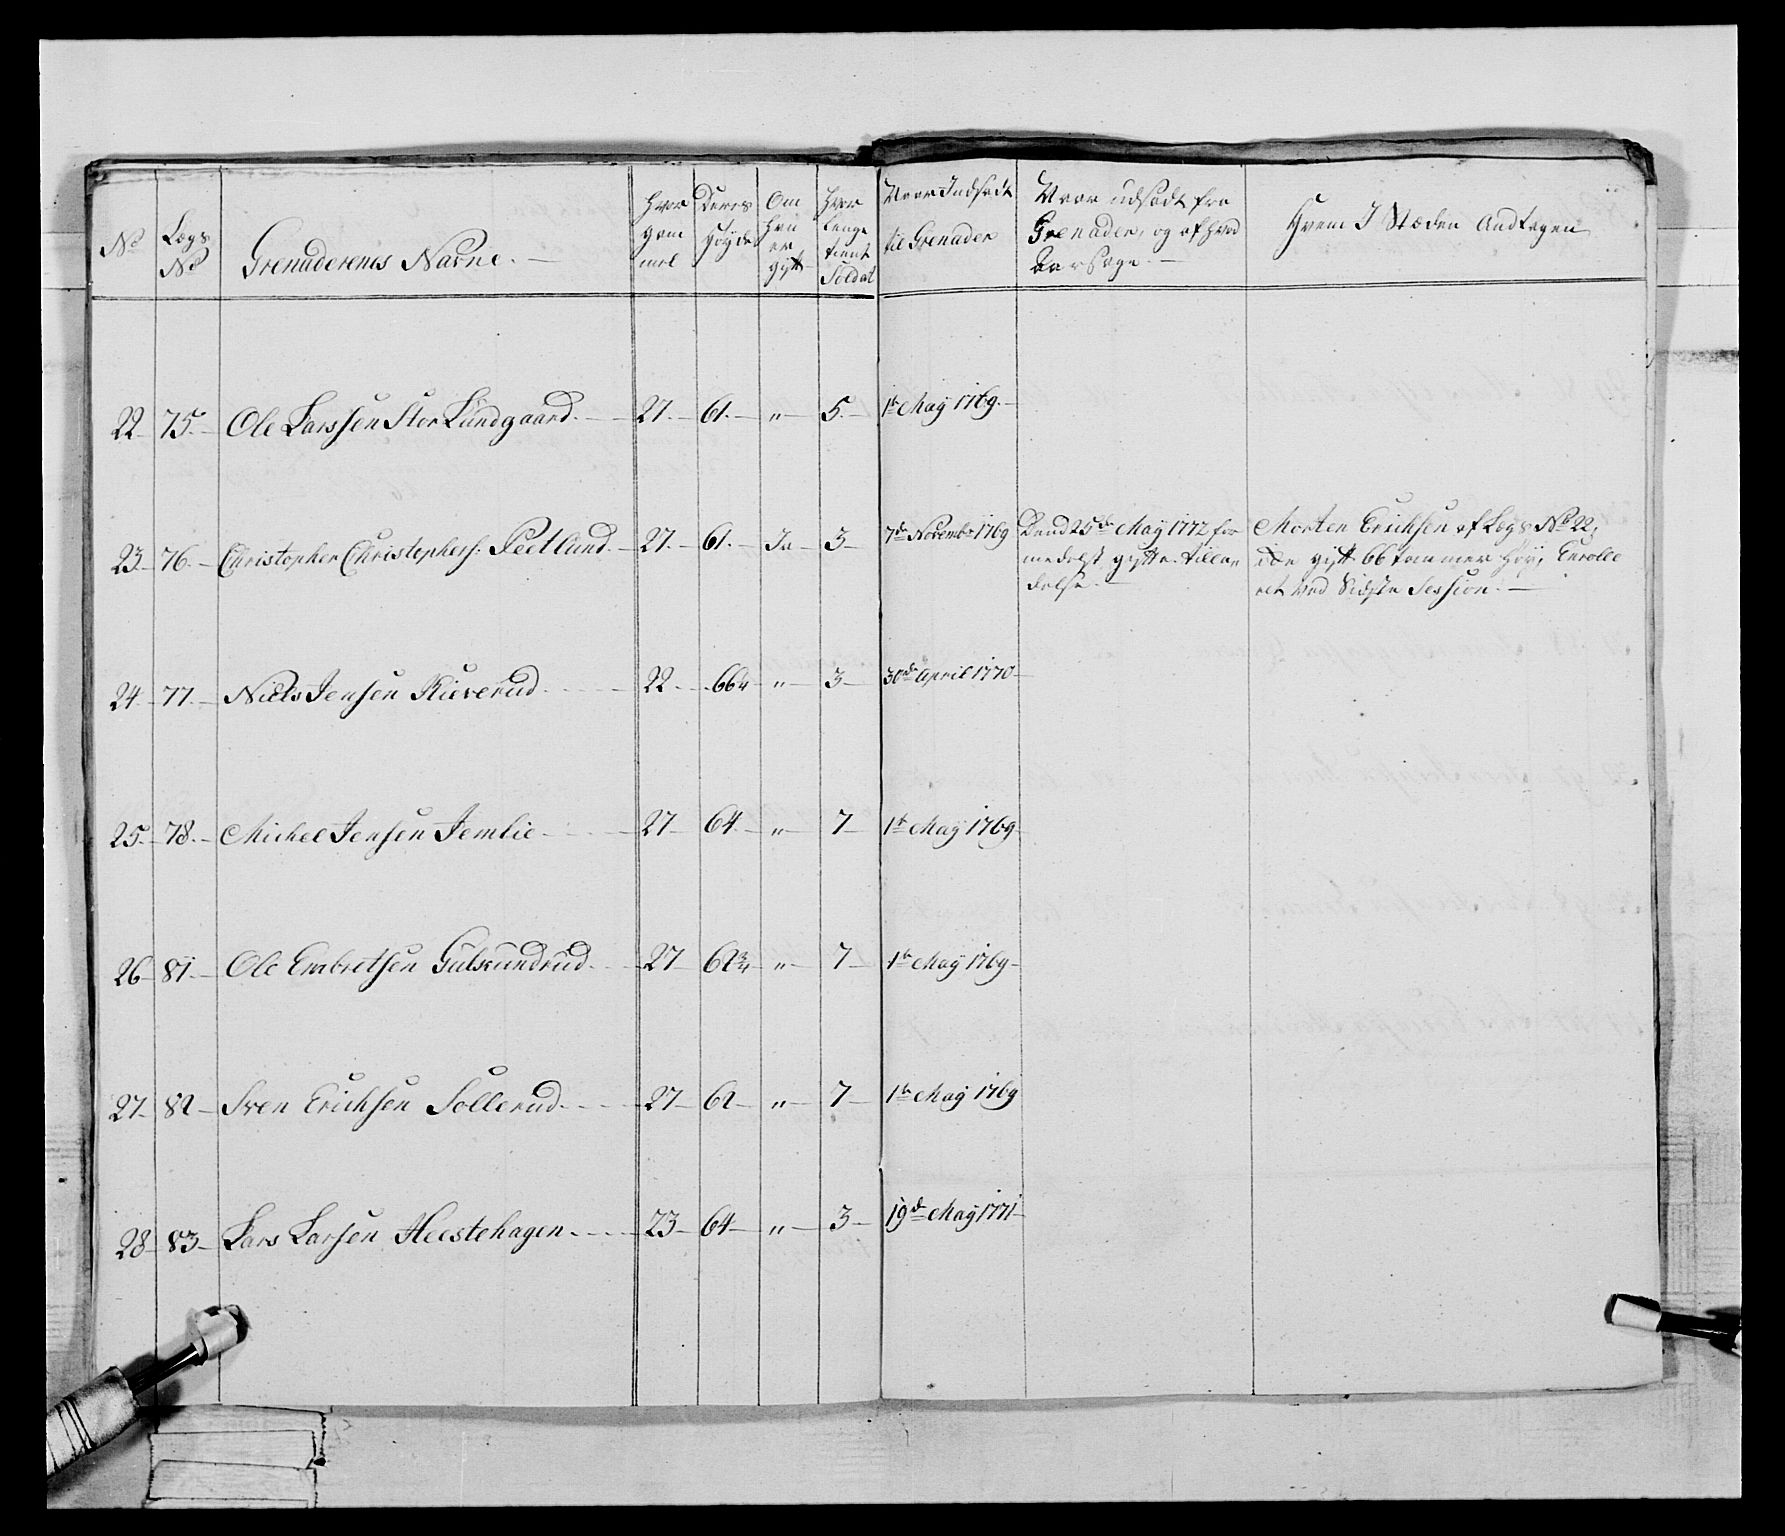 No
Lægs No
Grenaderenes Nafne.
Hvor gam mel
Deres Høyde
Om han er gift
Hvor lenge tient Soldat
Naar Indsadt til Grenader
Naar udsadt fra Grenader, og af hvad Aarsage.
Hvem I Stæden Andtagen
22 75. Ole Larssen Stor Lundgaard. 27. 61. " 5. 1te Maÿ 1769.
23. 76. Christopher Christophers: Peetlund. 27. 61. Ja 3 7de Novembr 1769 Dend 25de Maÿ 1772 for Morten Erichsen af Lægs No 22,
medelst gifte 66 tommer Høÿ, Enrolle
delse. ret ved Sidste Session.
24. 77. Niels Jensen Kieverud 22 66¼ " 3 30de April 1770
25. 78. Michel Jensen Jemlie 27 64 " 7 1te Maÿ 1769
26 81. Ole Embretsen Gulsrundrud. 27 62¾ " 7 1te Maÿ 1769
27 82 Sven Erichsen Sollerud. 27 62 " 7 1te Maÿ 1769
28 83 Lars Larsen Heestehagen. 23 64 " 3 19de Maÿ 1771